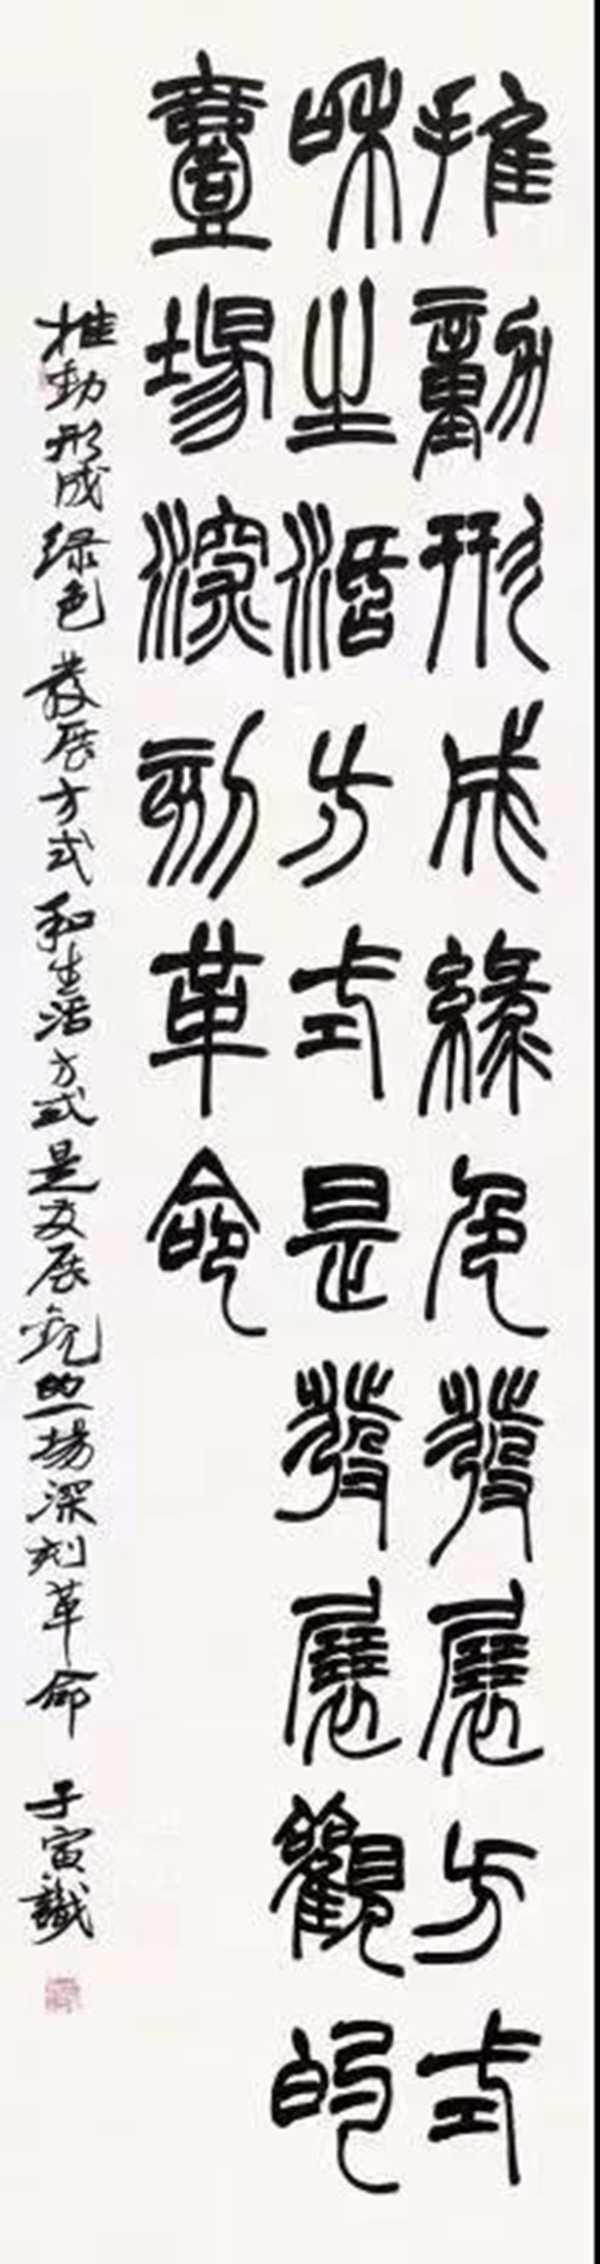 推動形成綠色發展方式
和生活方式是發展觀的
壹場深刻革命
推動形成绿色發展方式和生活方式是发展观的一場深刻革命 子寅識